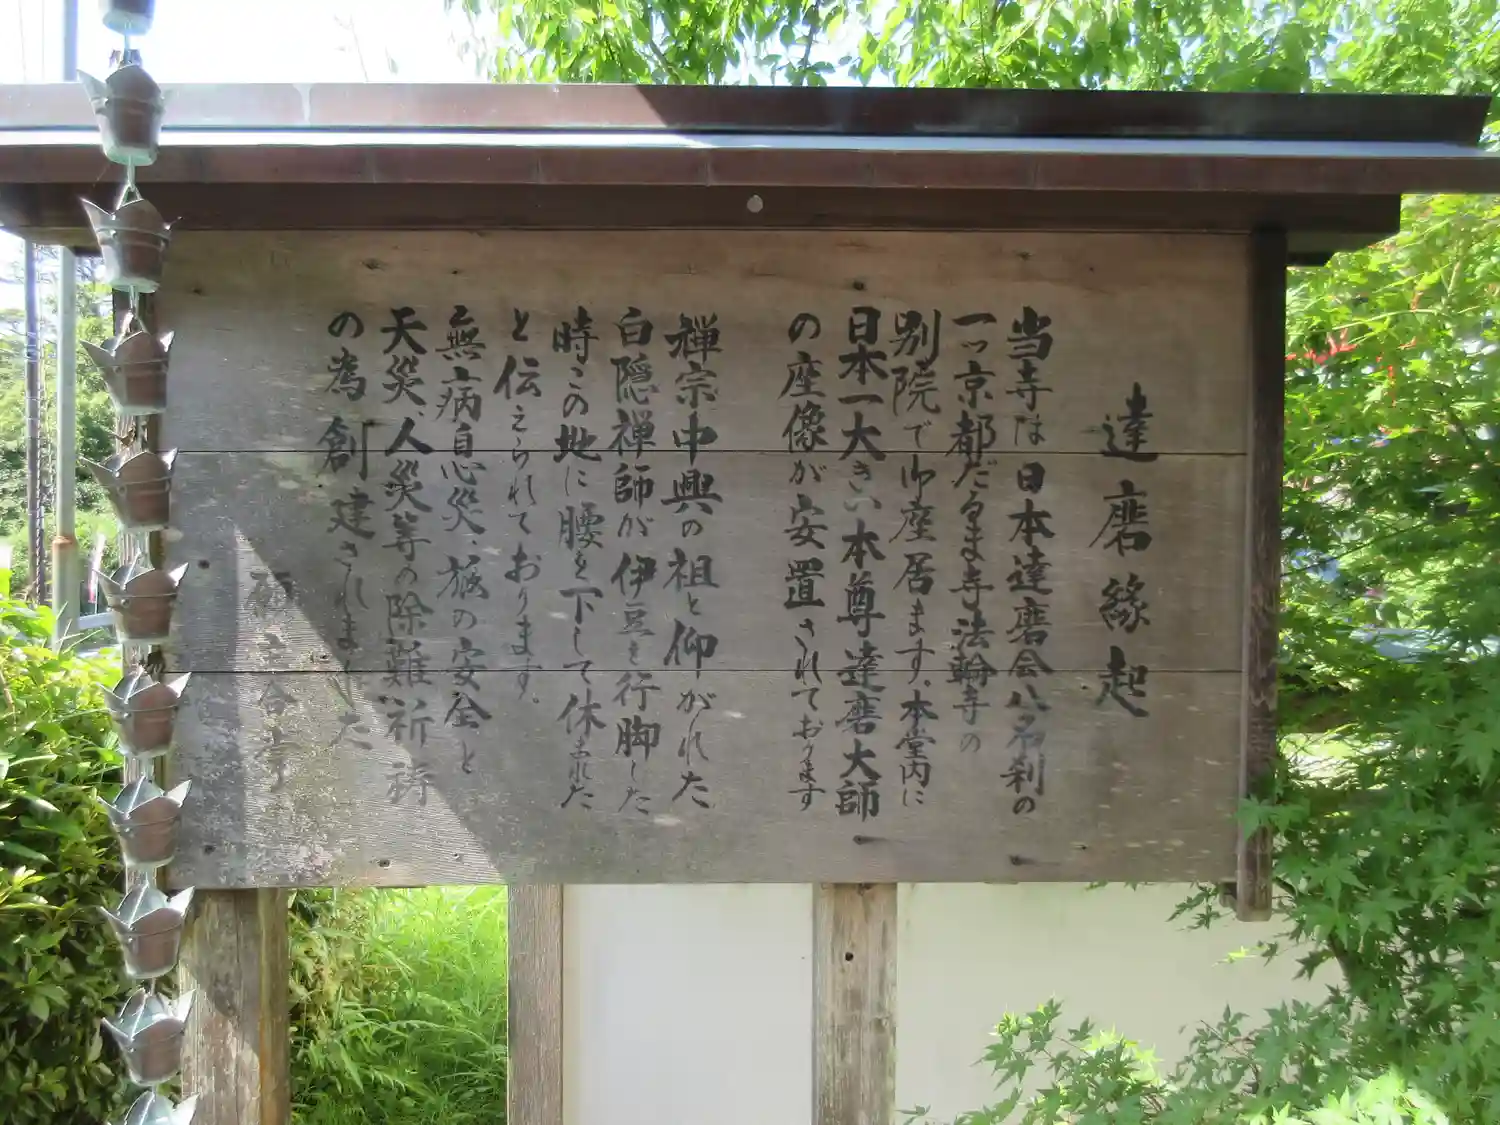 達磨縁起
当寺は日本達磨会八名刹の
一ッ京都だるま寺法輪寺の
別院で御座居ます。本堂内に
日本一大きい本尊達磨大師
の座像が安置されております
禅宗中興の祖と仰がれた
白隠禅師が伊豆を行脚した
時この地に腰を下して休まれた
と伝えられております。
無病息災、旅の安全と
天災、人災等の除難祈祷
の為創建されました